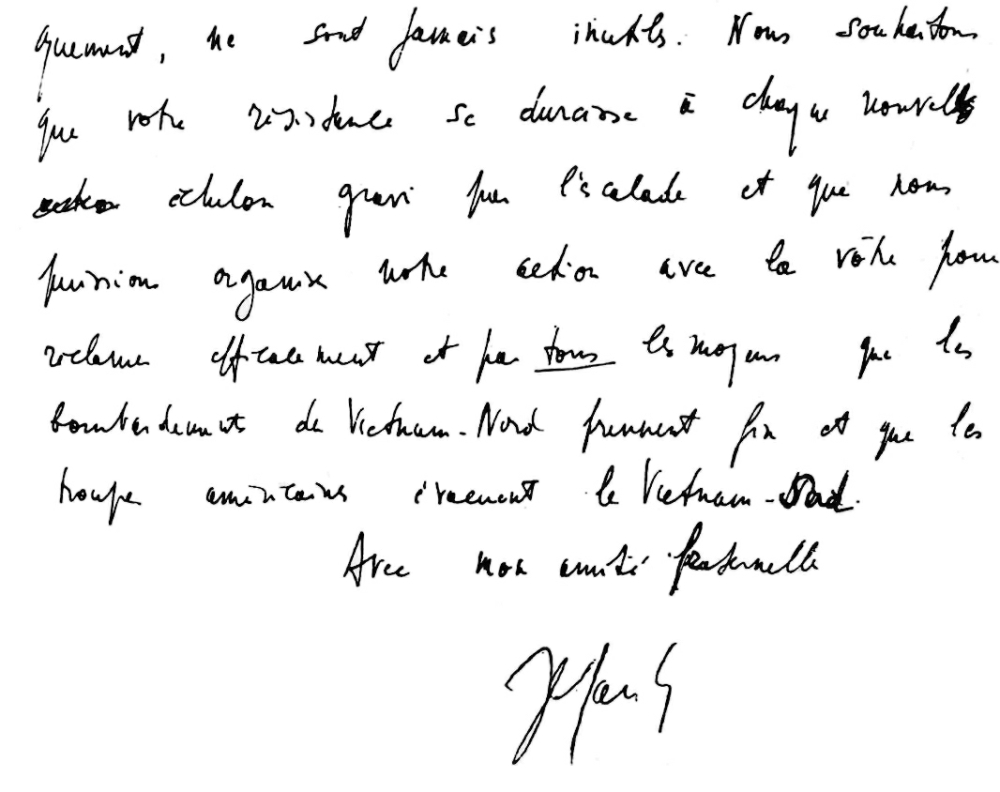 quement, ne sont jamais inutiles. Nous souhaitons
que votre résistance se durcisse à chaque nouvel
échelon gravi par l'escalade et que nous
puissions organiser notre action avec la vôtre pour
réclamer efficacement et par tous les moyens que les
bombardements du Vietnam-Nord prennent fin et que les
troupes américaines évacuent le Vietnam-Sud.
Avec mon amitié fraternelle